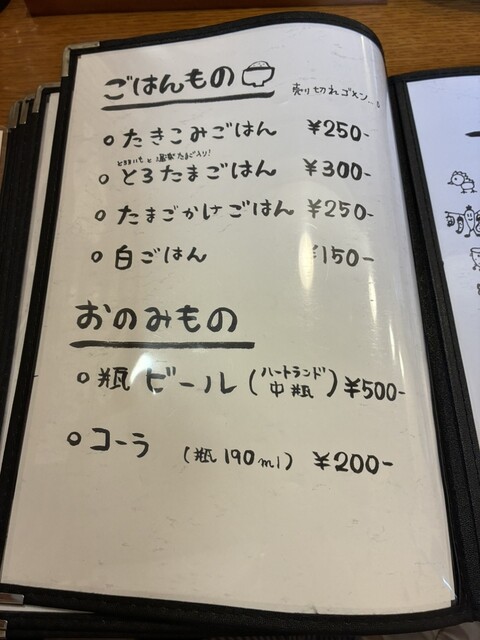 ごはんもの
売り切れゴメン…
○たきこみごはん ¥250-
○とろたまごはん ¥300-
○たまごかけごはん ¥250-
○白ごはん ¥150-
おのみもの
○瓶ビール(ハートランド中瓶)¥500-
○コーラ (瓶190ml) ¥200-